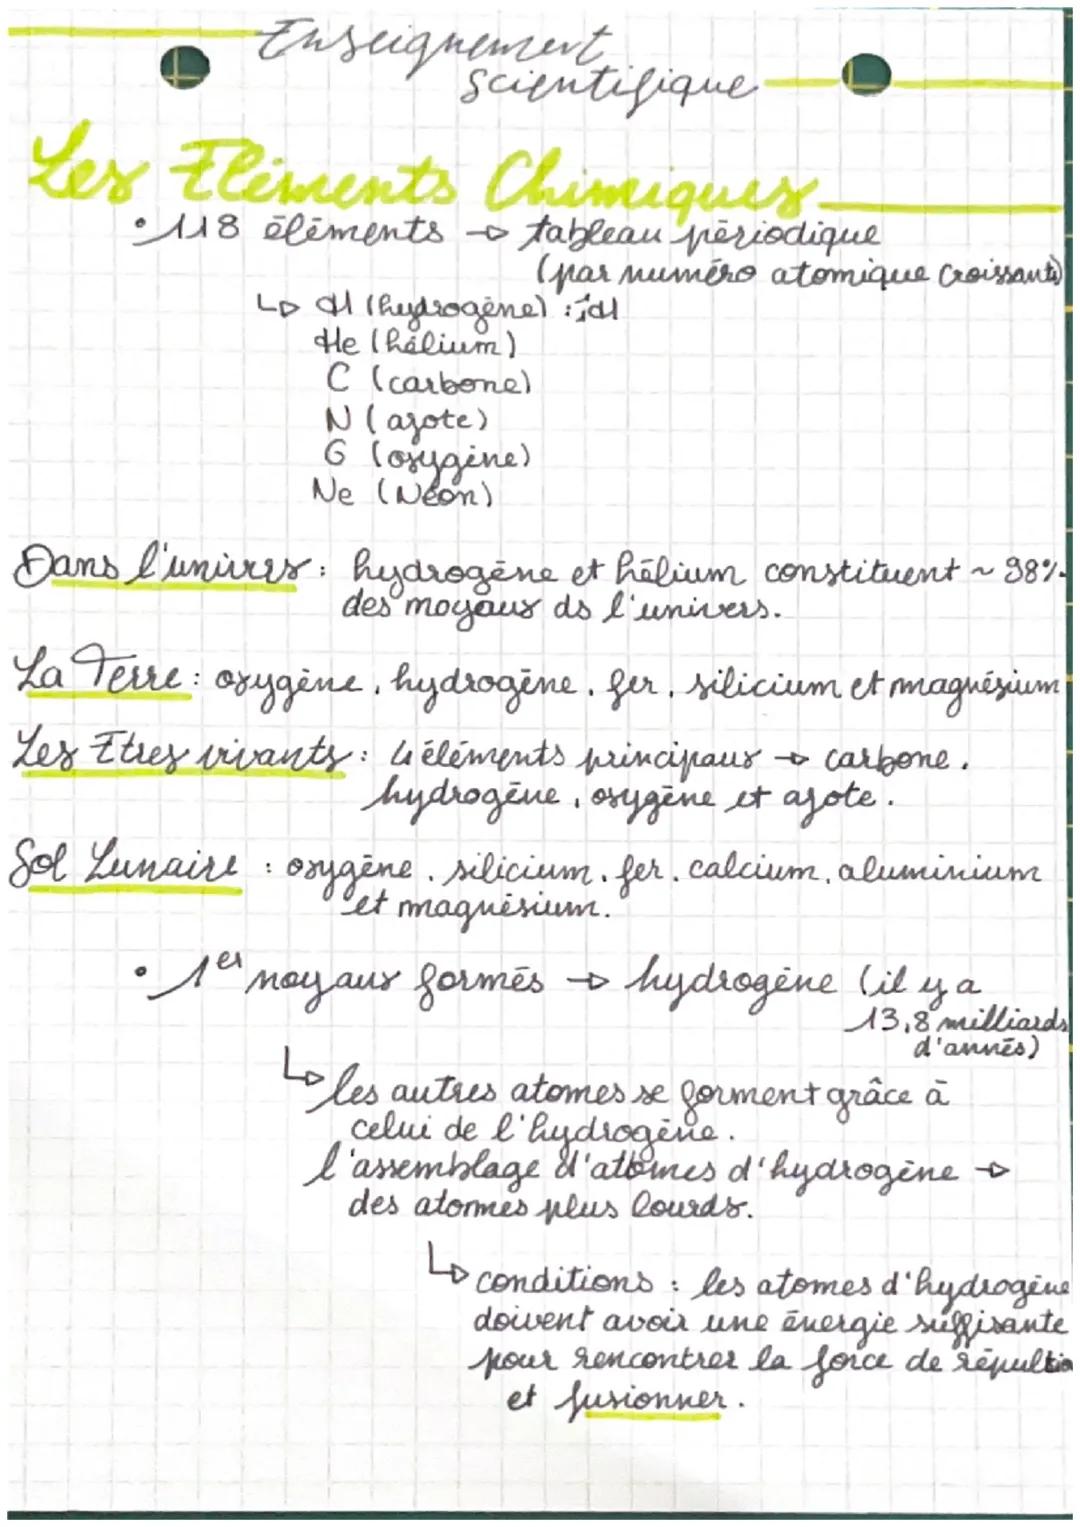 Enseignement
Scientifique
Les Eléments Chimiques
• 118 éléments → tableau périodique
(par numéro atomique croissants)
↳ H (hydrogène) : ¹₁H
He (hélium)
C (carbone)
N (azote)
O (oxygène)
Ne (Néon)
Dans l'univers : hydrogène et hélium constituent ~ 98%
des noyaux ds l'univers.
La Terre : oxygène, hydrogène, fer, silicium et magnésium
Les Etres vivants : 4 éléments principaux → carbone,
hydrogène, oxygène et azote.
Sol Lunaire : oxygène, silicium, fer, calcium, aluminium
et magnésium.
• 1er noyaux formés → hydrogène (il y a
13,8 milliards
d'annés)
↳ les autres atomes se forment grâce à
celui de l'hydrogène.
l'assemblage d'atomes d'hydrogène →
des atomes plus lourds.
↳ conditions : les atomes d'hydrogène
doivent avoir une énergie suffisante
pour rencontrer la force de répultio
et fusionner.